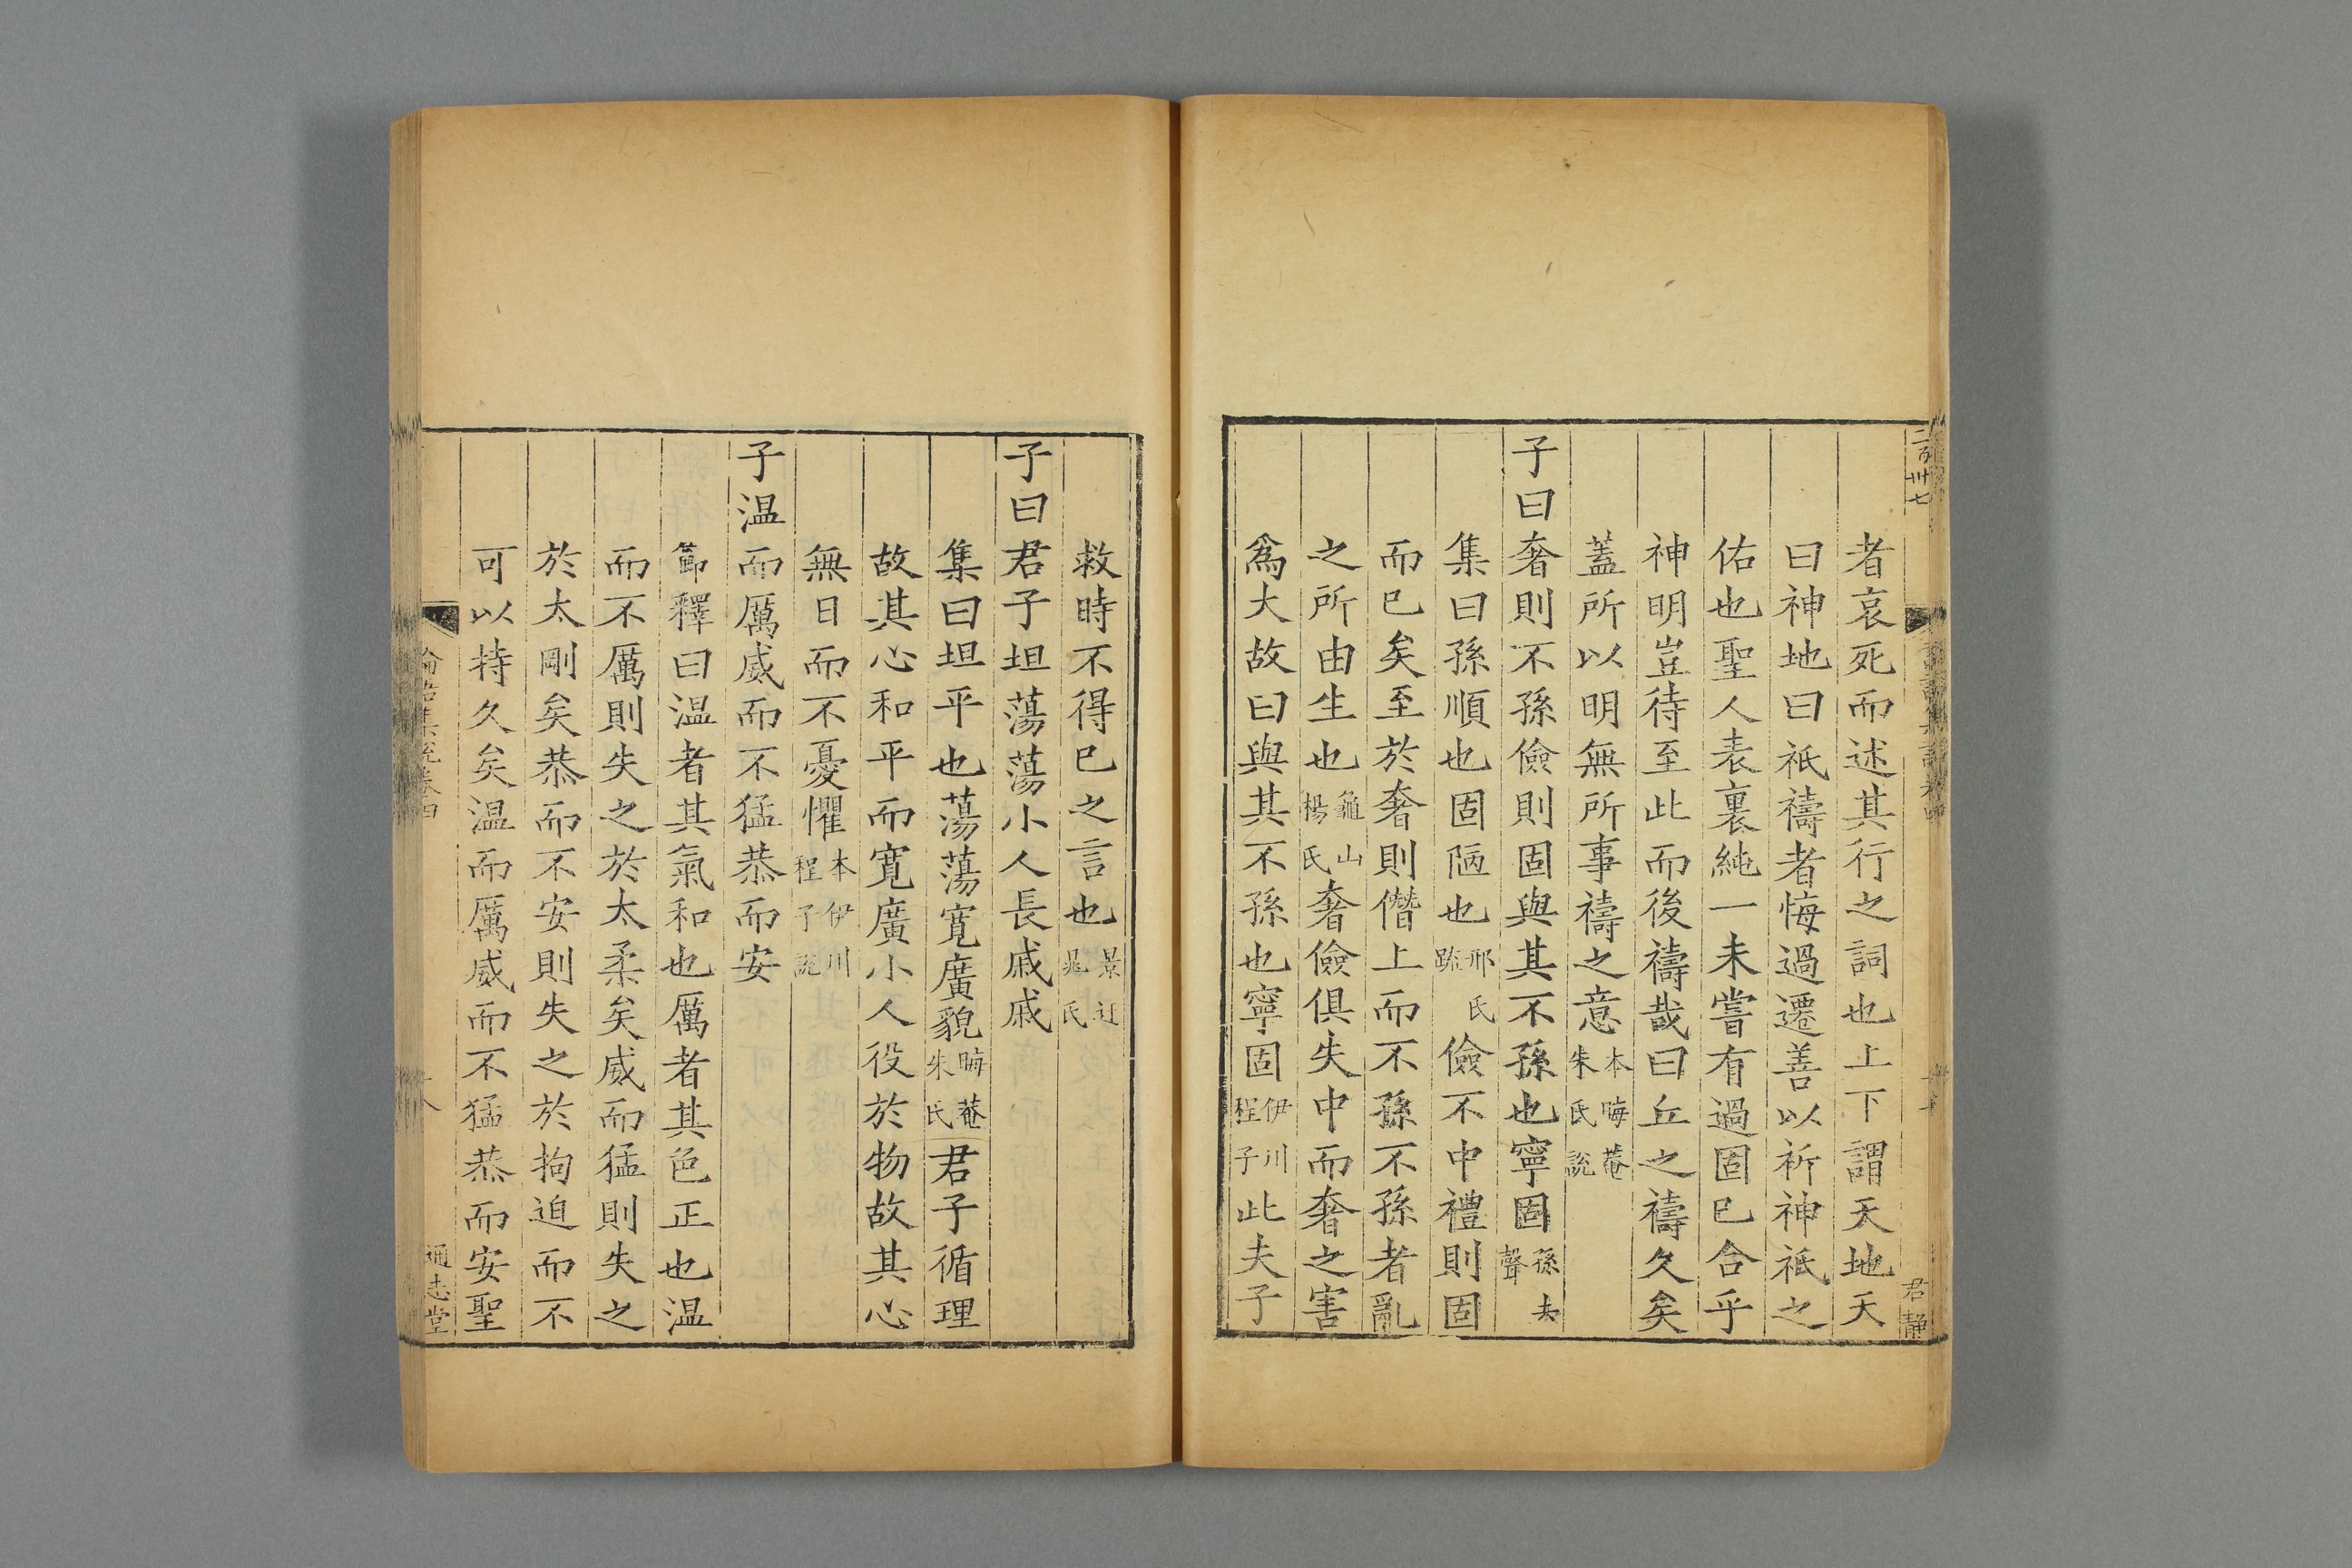 者哀死而述其行之詞也上下謂天地天
曰神地曰祇禱者悔過遷善以祈神祇之
佑也聖人表裏純一未嘗有過固已合乎
神明豈待至此而後禱哉曰丘之禱久矣
蓋所以明無所事禱之意本晦菴朱氏說
子曰奢則不孫儉則固與其不孫也寧固孫去聲
集曰孫順也固陋也邢氏疏儉不中禮則固
而已矣至於奢則僭上而不孫不孫者亂
之所由生也龜山楊氏奢儉俱失中而奢之害
為大故曰與其不孫也寧固伊川程子此夫子
救時不得已之言也景迂晁氏
子曰君子坦蕩蕩小人長戚戚
集曰坦平也蕩蕩寬廣貌晦菴朱氏君子循理
故其心和平而寬廣小人役於物故其心
無日而不憂懼本伊川程子說
子溫而厲威而不猛恭而安
節釋曰溫者其氣和也厲者其色正也溫
而不厲則失之於太柔矣威而猛則失之
於太剛矣恭而不安則失之於拘迫而不
可以持久矣溫而厲威而不猛恭而安聖
論語集說卷四
通志堂
二百卅七
君靜